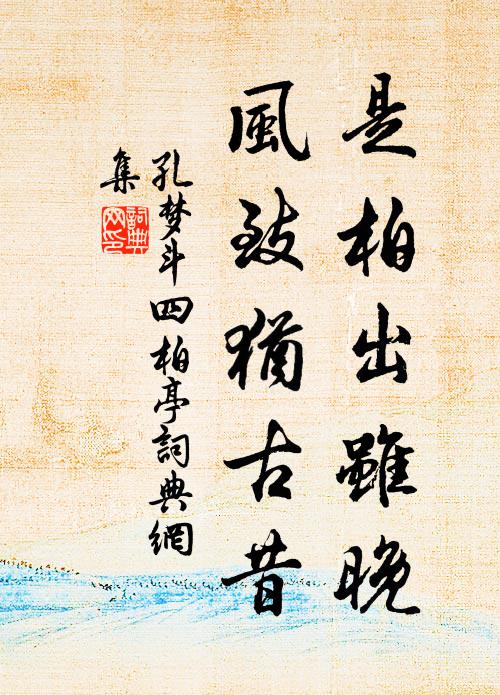 是柏出雖晚
風致猶古昔
孔梦斗四柏亭詞典網
集
詞典
网印